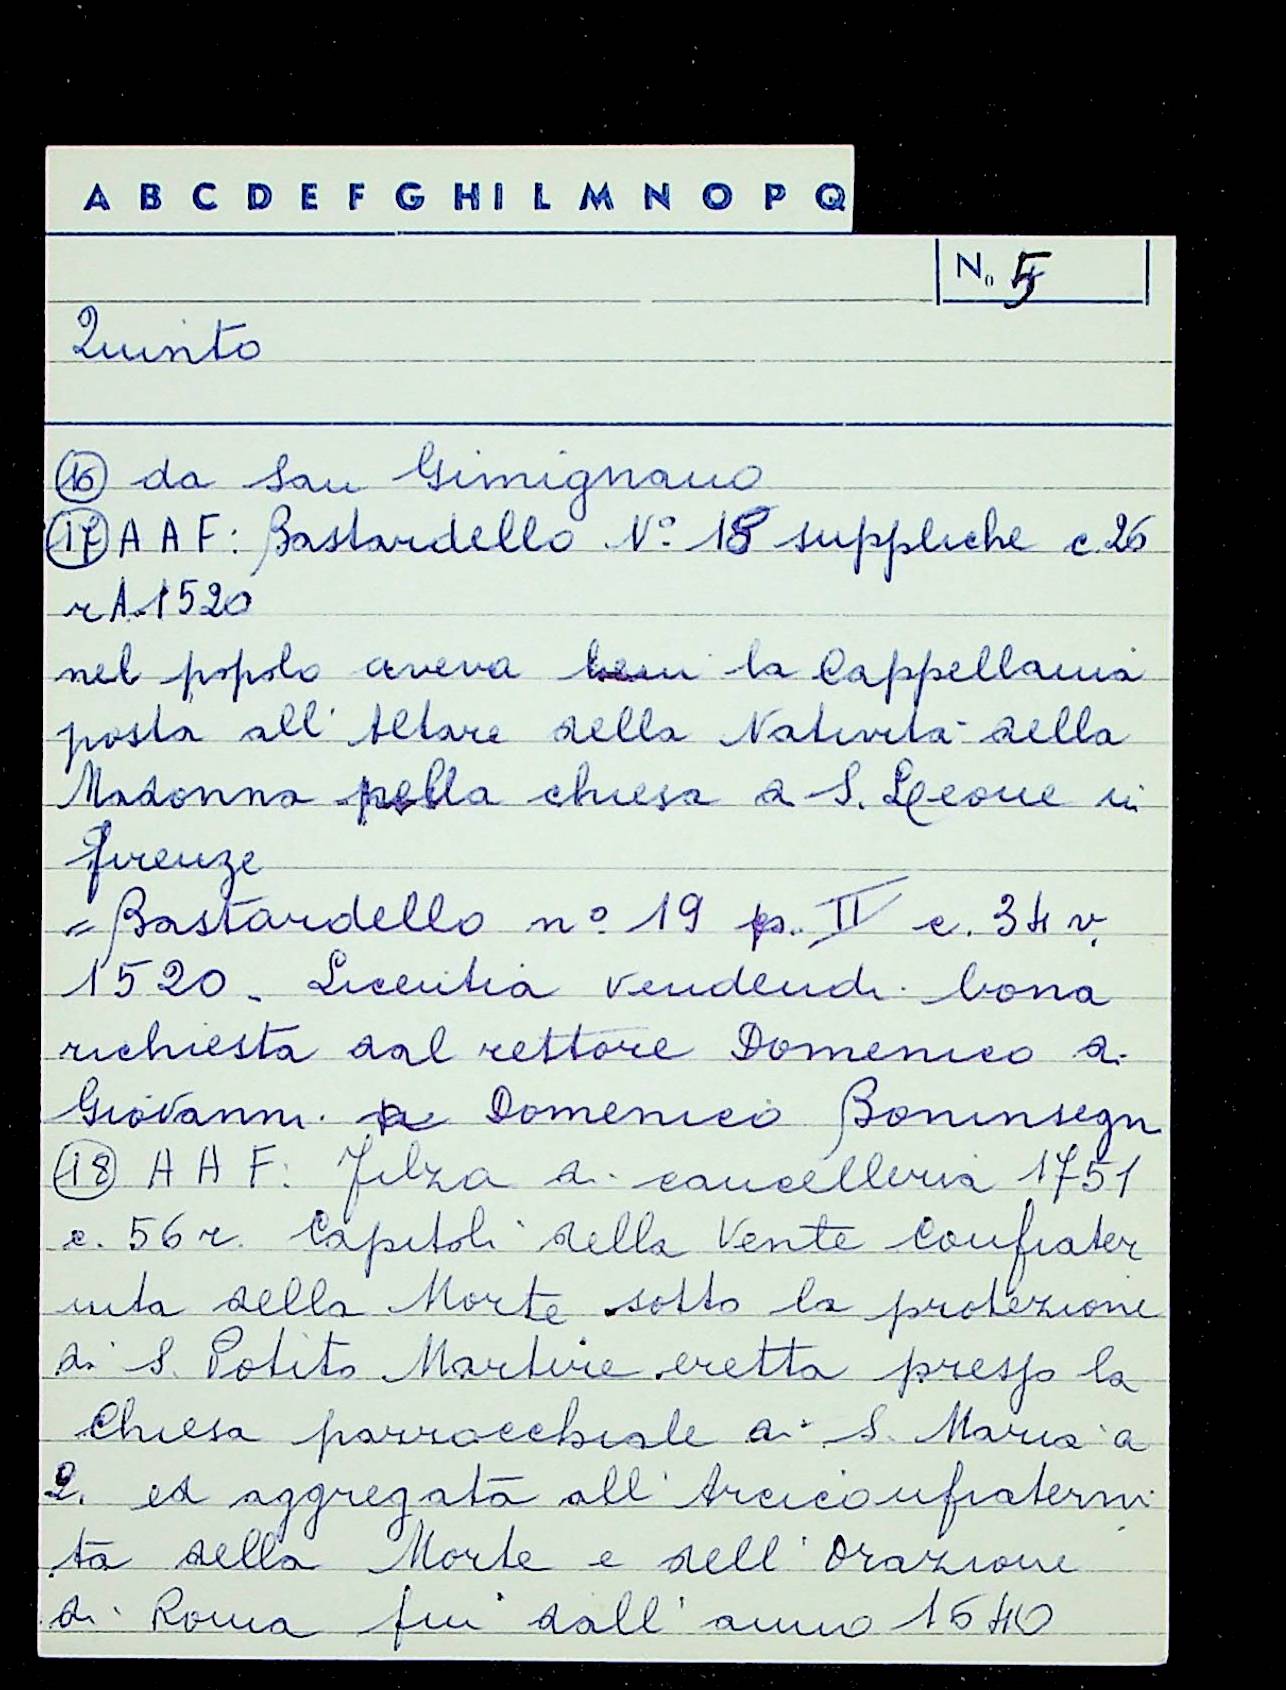 A B C D E F G H I L M N O P Q
N. 5
Quinto
16 da San Gimignano
17 A A F: Bastardello N° 18 suppliche c. 26
r A. 1520
nel popolo aveva beni la Cappellania
posta all' Altare della Natività della
Madonna nella chiesa di S. Leone in
Firenze
= Bastardello n° 19 p. II c. 34 v.
1520. Licentia vendendi bona
richiesta dal rettore Domenico di
Giovanni di Domenico Boninsegn
18 A A F: Filza di cancelleria 1751
c. 56 r. Capitoli della Vente Confrater
nita della Morte sotto la protezione
di S. Potito Martire eretta presso la
Chiesa parrocchiale di S. Maria a
Q. ed aggregata all' Arciconfraterni
ta della Morte e dell' Orazione
di Roma fin dall' anno 1640